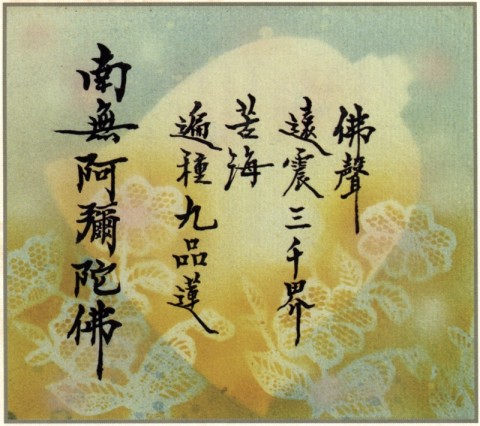 佛聲
遠震三千界
苦海
遍種九品蓮
南無阿彌陀佛